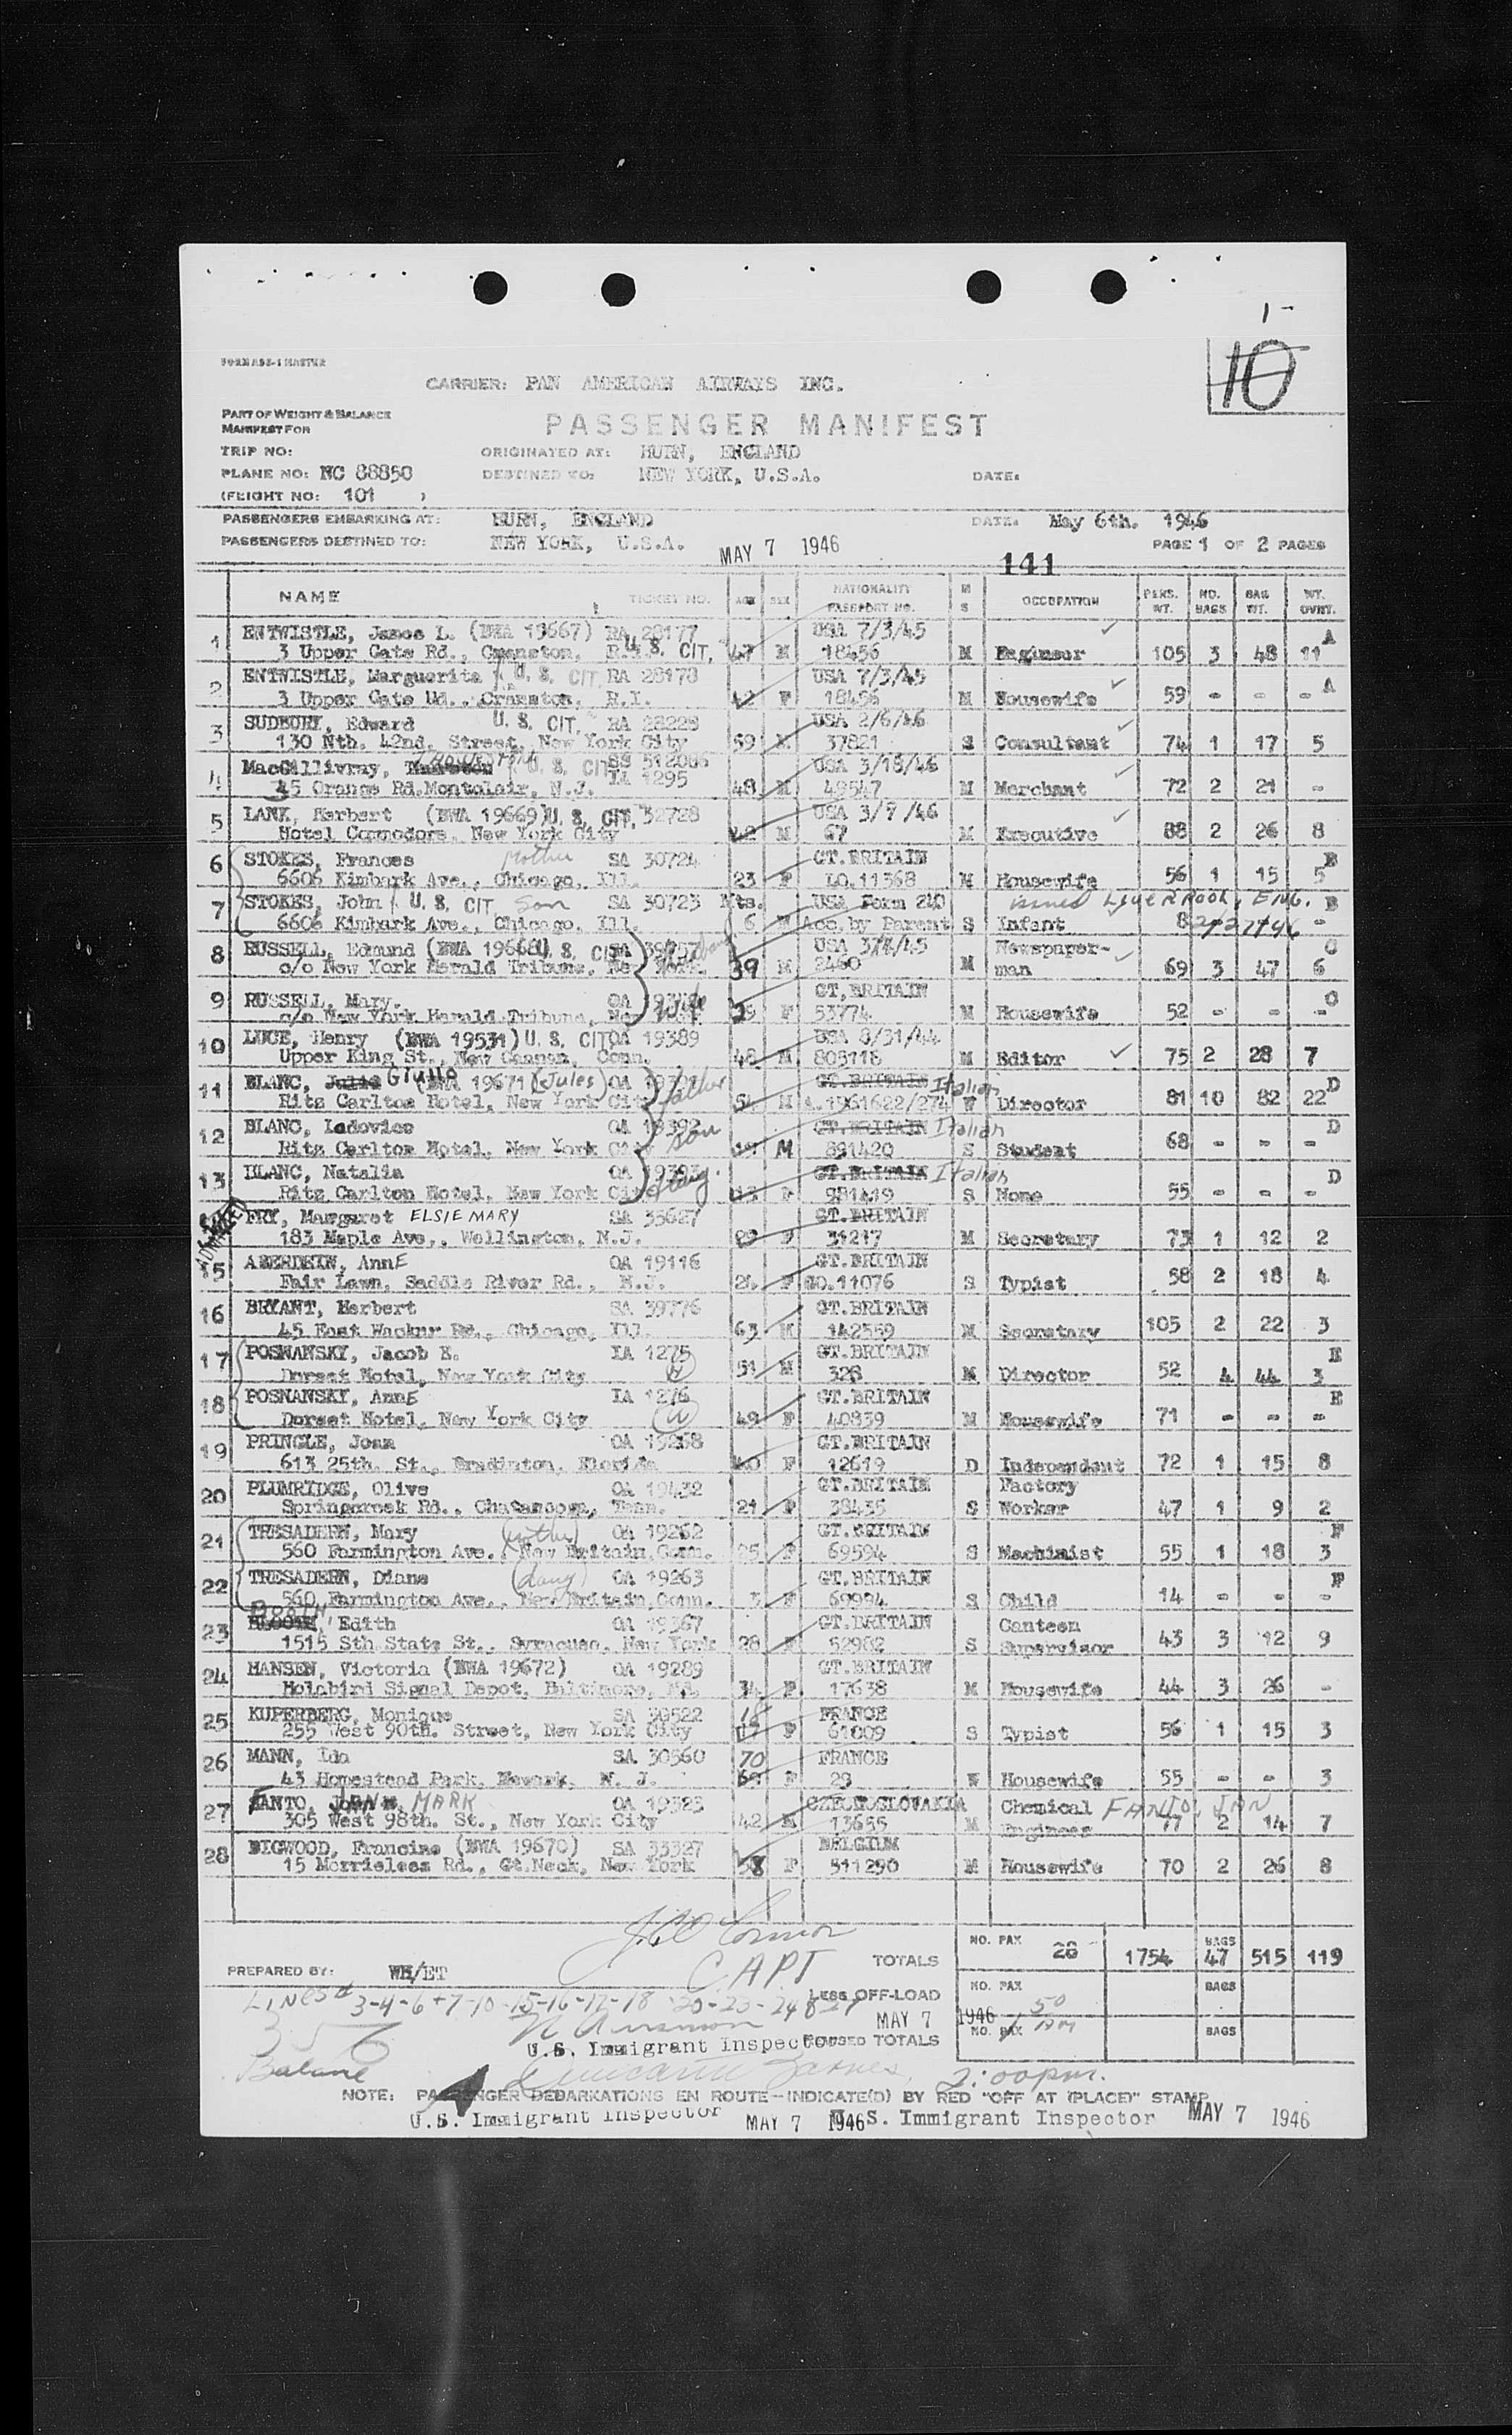 1-
10
FORM ADS-1 MASTER
CARRIER: PAN AMERICAN AIRWAYS INC.
PART OF WEIGHT & BALANCE
MANIFEST FOR
PASSENGER MANIFEST
TRIP NO: ORIGINATED AT: HURN, ENGLAND
PLANE NO: NC 88850 DESTINED TO: NEW YORK, U.S.A. DATE:
(FLIGHT NO: 101 )
PASSENGERS EMBARKING AT: HURN, ENGLAND DATE: May 6th. 1946
PASSENGERS DESTINED TO: NEW YORK, U.S.A. MAY 7 1946 PAGE 1 OF 2 PAGES
141
NAME TICKET NO. AGE SEX NATIONALITY PASSPORT NO. M S OCCUPATION PERS. WT. NO. BAGS BAG WT. WT. OVRT.
1 ENTWISTLE, James L. (BWA 19667) RA 28177 USA 7/3/45 A
3 Upper Gate Rd., Cranston, R.I. U. S. CIT. 47 M 18456 M Engineer 105 3 48 11
2 ENTWISTLE, Marguerite U. S. CIT RA 28178 USA 7/3/45 A
3 Upper Gate Rd., Cranston, R.I. 42 F 18456 M Housewife 59 - - -
3 SUDBURY, Edward U. S. CIT. RA 28229 USA 2/6/46
130 Nth. 42nd. Street, New York City 59 M 37821 S Consultant 74 1 17 5
4 MacGillivray, U. S. CIT SS 512086 USA 3/18/46
45 Orange Rd. Montclair, N.J. IA 1295 48 M 49547 M Merchant 72 2 21 -
5 LANK, Herbert (BWA 19669) U. S. CIT. 32728 USA 3/7/46
Hotel Commodore, New York City 42 M 67 M Executive 88 2 26 8
6 STOKES, Frances Mother SA 30724 GT.BRITAIN B
6606 Kimbark Ave., Chicago, Ill. 23 F LO.11368 M Housewife 56 1 15 5
7 STOKES, John U. S. CIT son SA 30723 Mts. USA Form 240 issued LIVERPOOL, ENG. B
6606 Kimbark Ave., Chicago, Ill. 6 M Acc.by Parent S Infant 8 2/27/46 -
8 RUSSELL, Edmund (BWA 19668) U. S. CIT USA Newspaper- C
c/o New York Herald Tribune, New York. 39 M 2460 M man 69 3 47 6
9 RUSSELL, Mary. OA GT.BRITAIN C
c/o New York Herald Tribune, New York. wife 29 F 53774 M Housewife 52 - - -
10 LUCE, Henry (BWA 19531) U. S. CIT OA 19389 USA 8/31/44
Upper King St., New Canaan, Conn. 48 M 805118 M Editor 75 2 28 7
11 BLANC, Julio GIULIO (BWA 19671) (Jules) OA father GT.BRITAIN Italian D
Ritz Carlton Hotel, New York City 54 M A.1961622/274 W Director 81 10 82 22
12 BLANC, Ludovico OA 19392 son GT.BRITAIN Italian D
Ritz Carlton Hotel, New York City M 891420 S Student 68 - - -
13 BLANC, Natalia OA 19393 daug. GT.BRITAIN Italian D
Ritz Carlton Hotel, New York City F 981419 S None 55 - - -
FRY, Margaret ELSIE MARY SA 35627 GT.BRITAIN
183 Maple Ave., Wellington, N.J. 29 F 31217 M Secretary 73 1 12 2
15 ABERDEIN, AnnE OA 19116 GT.BRITAIN
Fair Lawn, Saddle River Rd., N.J. F GO.11076 S Typist 58 2 18 4
16 BRYANT, Herbert SA 39776 GT.BRITAIN
45 East Wackur Rd., Chicago, Ill. 63 M 142559 M Secretary 105 2 22 3
17 POSNANSKY, Jacob E. IA 1275 GT.BRITAIN E
Dorset Hotel, New York City 51 M 328 M Director 52 4 44 3
18 POSNANSKY, AnnE IA 1276 GT.BRITAIN E
Dorset Hotel, New York City 49 F 40839 M Housewife 71 - - -
19 PRINGLE, Joan OA 19268 GT.BRITAIN
613 25th. St., Bradinton, Florida 40 F 12619 D Independent 72 1 15 8
20 PLUMRIDGE, Olive OA 19432 GT.BRITAIN Factory
Springcreek Rd., Chatanooga, Tenn. 21 F 38435 S Worker 47 1 9 2
21 TRESADERN, Mary (mother) OA 19262 GT.BRITAIN F
560 Farmington Ave., New Britain, Conn. 25 F 69594 S Machinist 55 1 18 3
22 TRESADERN, Diane (daug) OA 19263 GT.BRITAIN F
560 Farmington Ave., New Britain, Conn. 3 F 69994 S Child 14 - - -
23 BOOTH, Edith OA 19367 GT.BRITAIN Canteen
1515 Sth State St., Syracuse, New York 28 F 52982 S Supervisor 43 3 12 9
24 HANSEN, Victoria (BWA 19672) OA 19289 GT.BRITAIN
Holabird Signal Depot, Baltimore, Md. 34 F 17638 M Housewife 44 3 26 -
25 KUPERBERG, Monique SA 39522 18 FRANCE
255 West 90th. Street, New York City 17 F 61009 S Typist 56 1 15 3
26 MANN, Ida SA 30560 70 FRANCE
43 Homestead Park, Newark, N. J. 69 F 29 W Housewife 55 - - 3
27 FANTO, JAN MARK OA 19323 CZECHOSLOVAKIA Chemical FANTO, JAN
305 West 98th. St., New York City 42 M 13655 M Engineer 77 2 14 7
28 BIGWOOD, Francine (BWA 19670) SA 33327 BELGIUM
15 Morrieless Rd., Gt.Neck, New York 58 F 511290 M Housewife 70 2 26 8
J. O'Connor
CAPT
PREPARED BY: WH/ET TOTALS NO. PAX 28 1754 BAGS 47 515 119
Lines 3-4-6+7-10-15-16-17-18-20-23-24 & 27 LESS OFF-LOAD NO. PAX BAGS
MAY 7 1946 1 50 PM
U.S. Immigrant Inspector REVISED TOTALS NO. PAX BAGS
Balance
2:00 p.m.
NOTE: PASSENGER DEBARKATIONS EN ROUTE-INDICATE(D) BY RED "OFF AT (PLACE)" STAMP
U.S. Immigrant Inspector MAY 7 1946 U.S. Immigrant Inspector MAY 7 1946